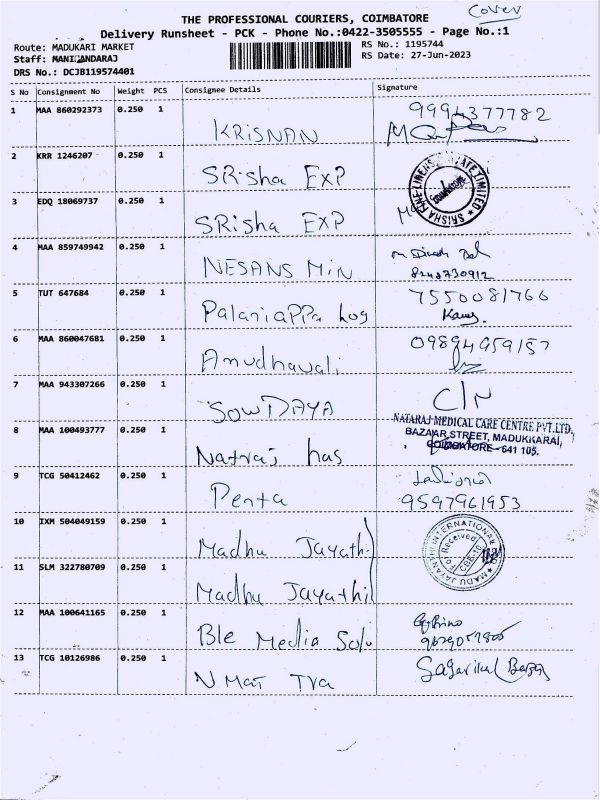 Cover
THE PROFESSIONAL COURIERS, COIMBATORE
Delivery Runsheet - PCK - Phone No.:0422-3505555 - Page No.:1
Route: MADUKARI MARKET
RS No.: 1195744
Staff: MANIKANDARAJ
RS Date: 27-Jun-2023
DRS No.: DCJB119574401
S No Consignment No Weight PCS Consignee Details Signature
1 MAA 860292373 0.250 1 KRISNAN 9994377782
2 KRR 1246207 0.250 1 SRisha EXP
3 EDQ 18069737 0.250 1 SRisha EXP
4 MAA 859749942 0.250 1 NESANS MiN
8248730912
5 TUT 647684 0.250 1 PalaniaPPa Log 7550081766
6 MAA 860047681 0.250 1 Amudhavali 09894959157
7 MAA 943307266 0.250 1 SOWDAYA C/N
NATARAJ MEDICAL CARE CENTRE PVT.LTD.,
BAZAAR STREET, MADUKKARAI,
COIMBATORE - 641 105.
8 MAA 100493777 0.250 1 Natraj has
9 TCG 50412462 0.250 1 Penta
9597961953
10 IXM 504049159 0.250 1 Madhu Jayathi
MADU JAYANTHI INTERNATIONAL
Received
11 SLM 322780709 0.250 1 Madhu Jayathil
12 MAA 100641165 0.250 1 Ble Media Solu
13 TCG 10126986 0.250 1 N Mat Tra